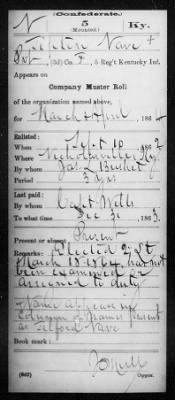 (Confederate.)
N 5 Ky.
(Mounted)
Nave +
Pvt, (3d) Co. F, 5 Reg't Kentucky Inf.
Appears on
Company Muster Roll
of the organization named above,
for March & April, 1864
Enlisted:
When Sept 10, 1862
Where Nicholasville, Ky.
By whom Jas. L.
Period 3 yrs
Last paid:
By whom Capt Wells
To what time Dec 31, 1863.
Present or absent Present
Remarks: Elected 2 Lt
March 18 1864, has not
been examined or
assigned to duty
Name appears in
column of Names present
as Telford Nave
Book mark:
(642) Copyist.